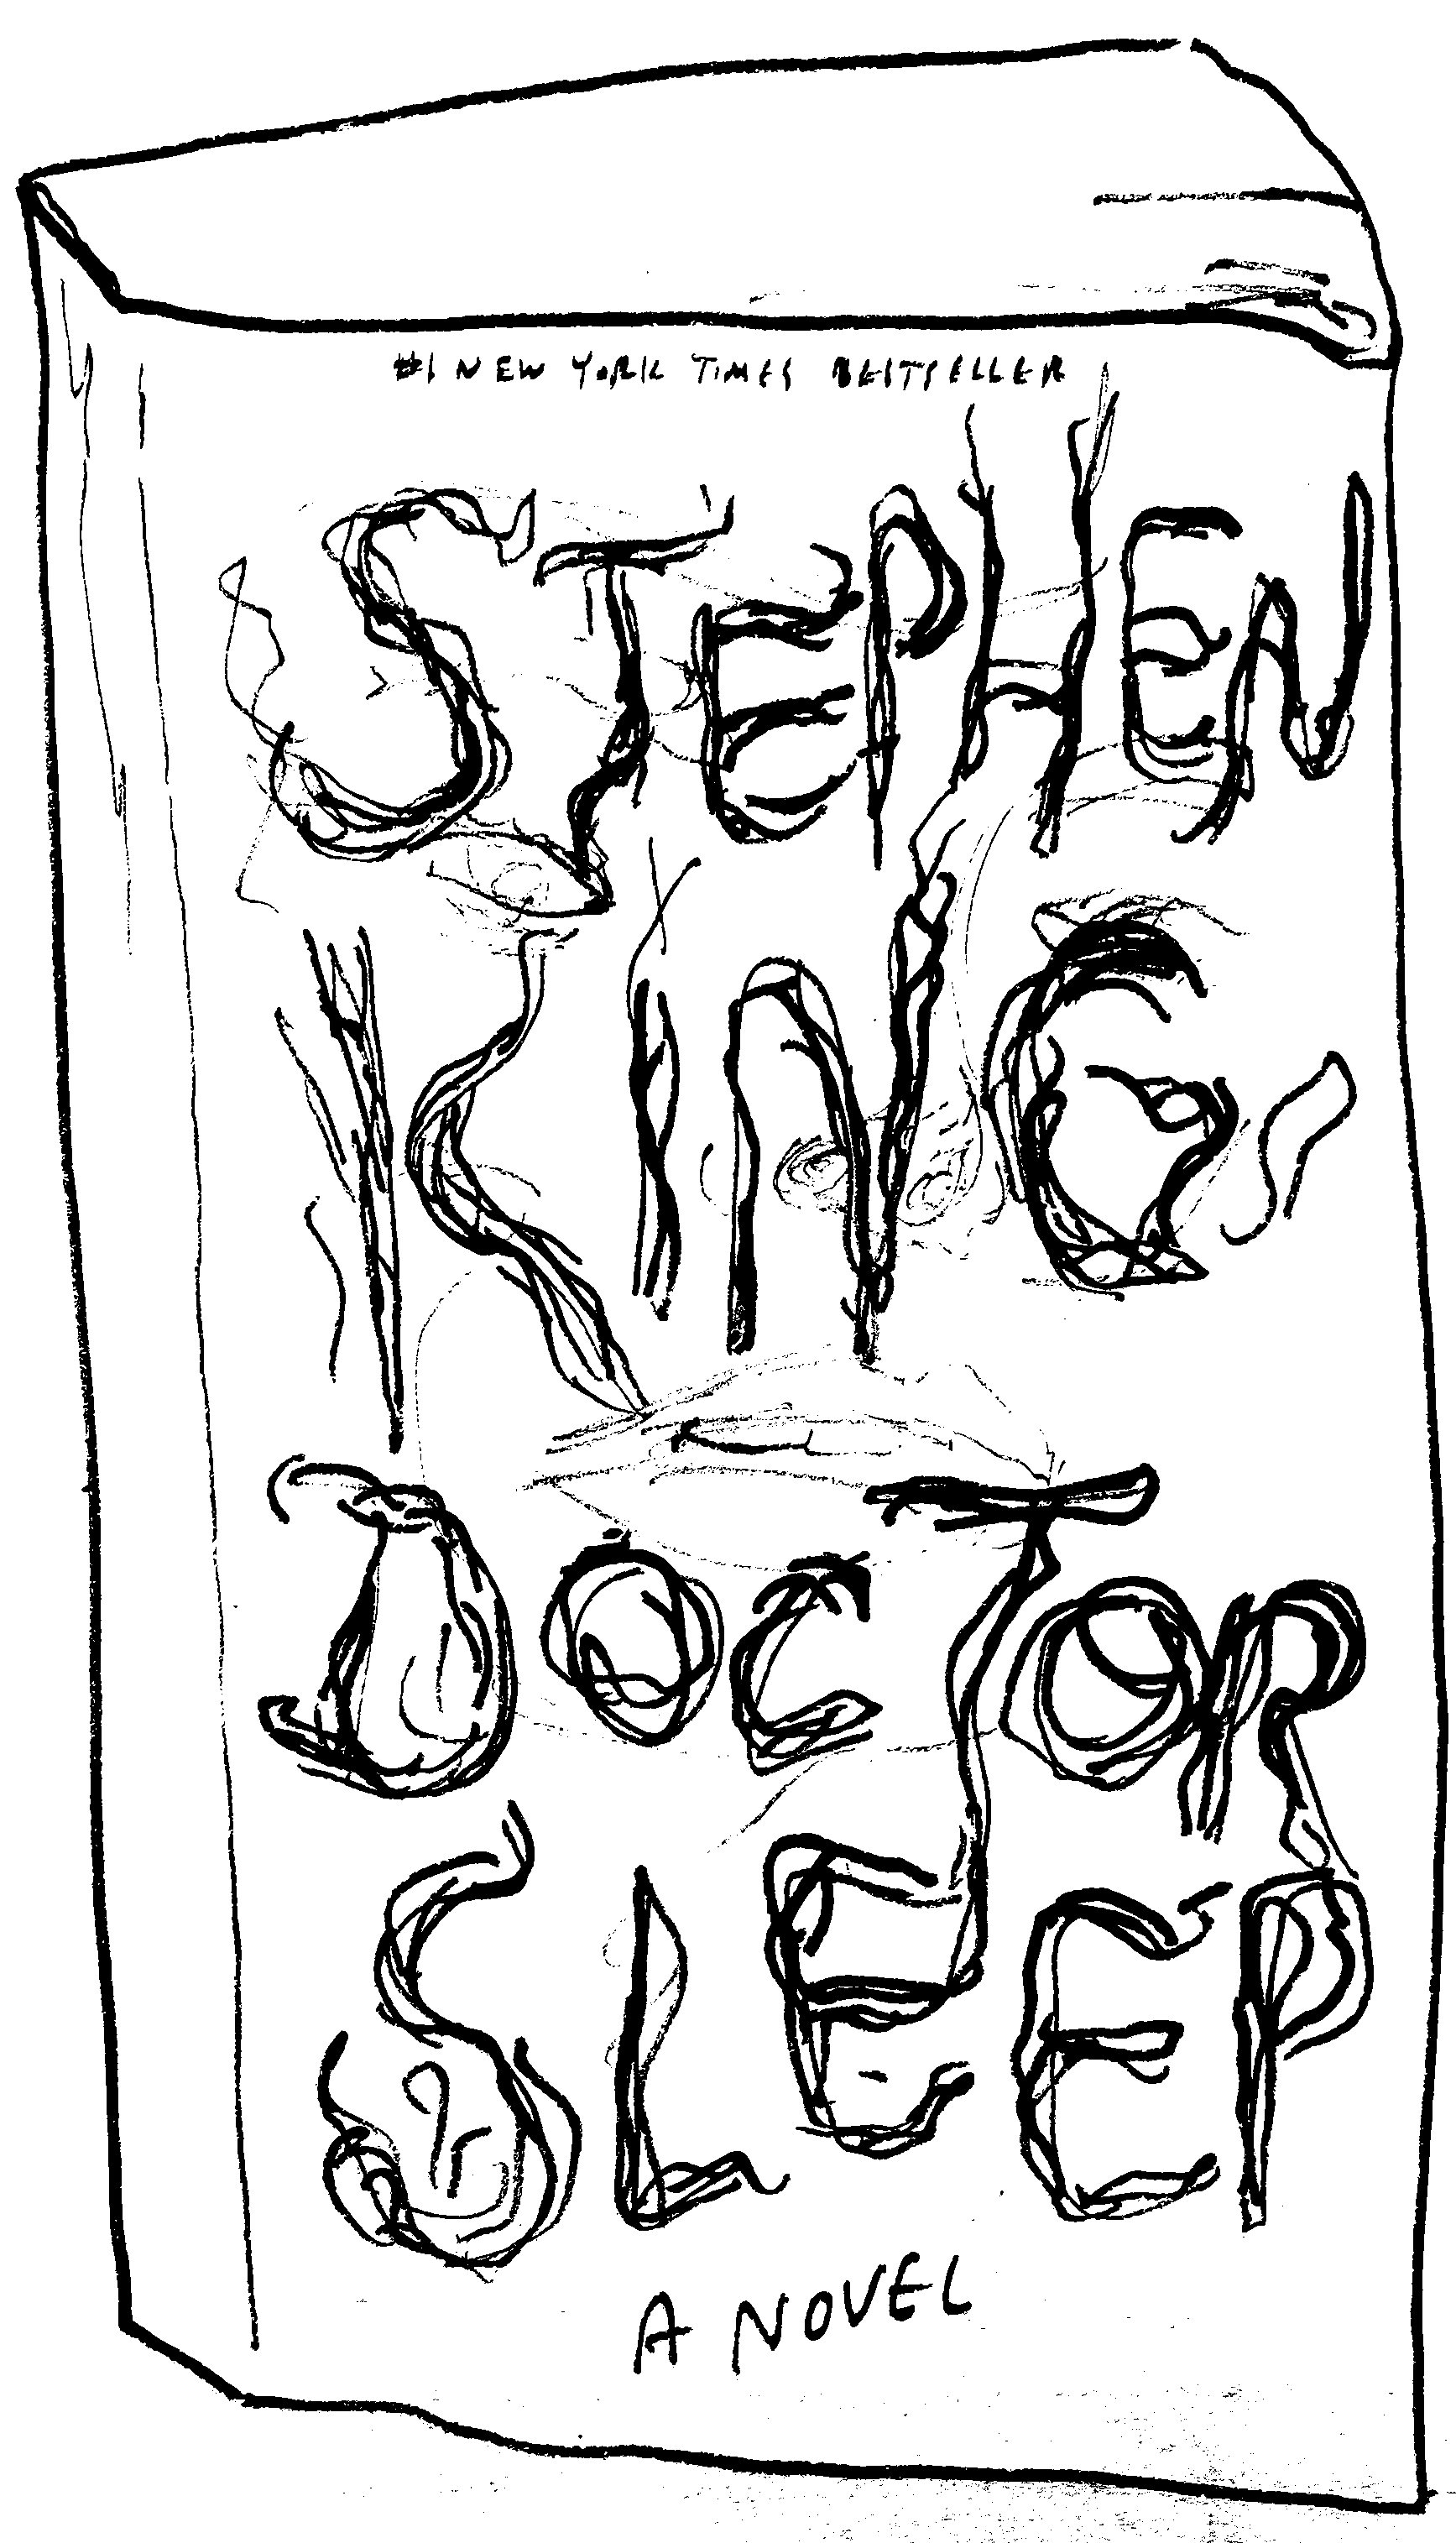 #1 NEW YORK TIMES BESTSELLER
STEPHEN
KING
DOCTOR
SLEEP
A NOVEL